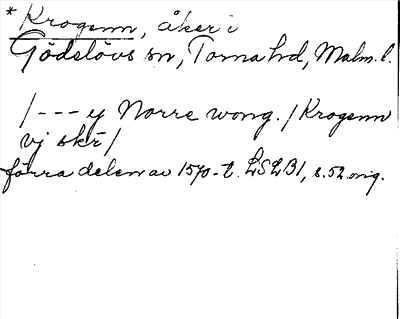 *Krogenn, åker i
Gödelövs sn, Torna hd, Malm. l.
/--- y Norre wong. / Krogenn
vj skr /
förra delen av 1570-t. LSLB1, s. 52 orig.